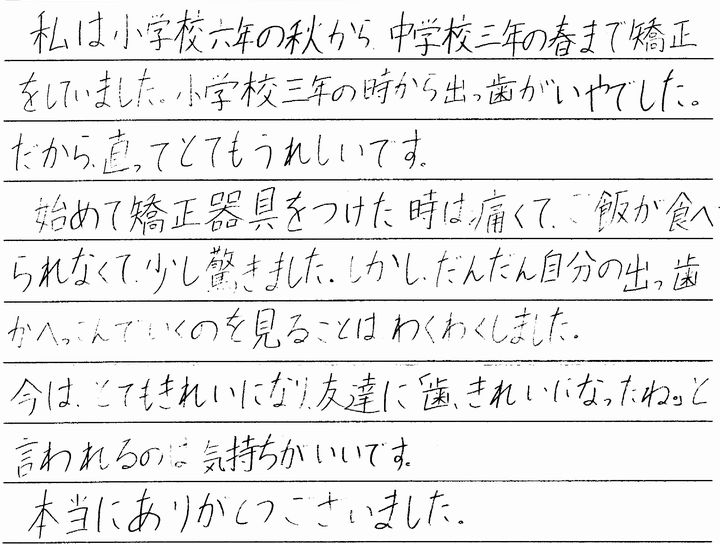 私は小学校六年の秋から、中学校三年の春まで矯正
をしていました。小学校三年の時から出っ歯がいやでした。
だから、直ってとてもうれしいです。
始めて矯正器具をつけた時は、痛くて、ご飯が食べ
られなくて、少し驚きました。しかし、だんだん自分の出っ歯
がへっこんでいくのを見ることは、わくわくしました。
今は、とてもきれいになり、友達に「歯、きれいになったね。」と
言われるのは気持ちがいいです。
本当にありがとうございました。